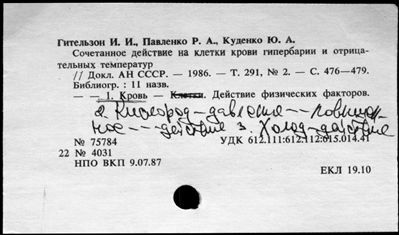 Гительзон И. И., Павленко Р. А., Куденко Ю. А.
Сочетанное действие на клетки крови гипербарии и отрица-
тельных температур
// Докл. АН СССР. — 1986. — Т. 291, № 2. — С. 476—479.
Библиогр. : 11 назв.
— — 1. Кровь — Клетки. Действие физических факторов.
2. Кислород — давление — — повышен-
ное — — действие 3. Холод — действие
№ 75784 УДК 612.111:612.112:615.014.41
22 № 4031
НПО ВКП 9.07.87 ЕКЛ 19.10